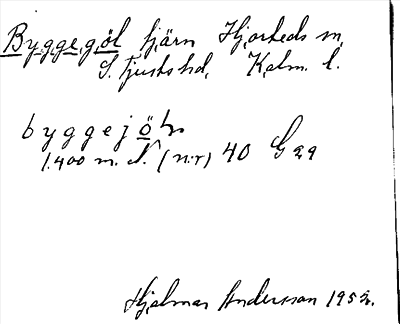 Byggegöl tjärn Hjorteds sn,
S. Tjusts hd, Kalm. l.
byggejöln
1.400 m. N (n:r) 40 G 29
Hjalmar Andersson 1952.